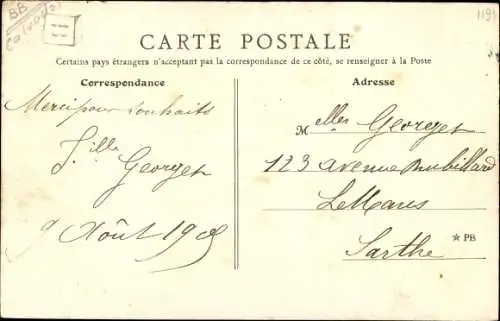 BB
Calvados
H
1191
CARTE POSTALE
Certains pays étrangers n'acceptant pas la correspondance de ce côté, se renseigner à la Poste
Correspondance
Adresse
Merci pour souhaits
Georget
9 Août 1905
Melles Georget
123 avenue Mubillard
Le Mans
Sarthe
PB